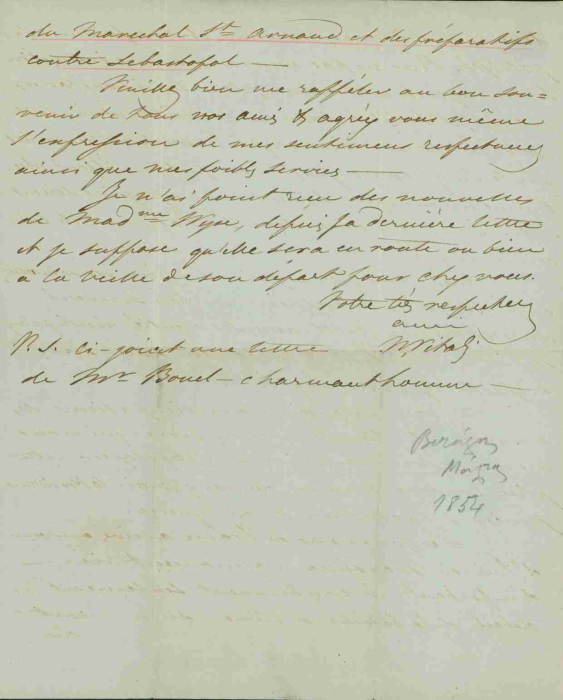 du Marechal St Arnaud et des préparatifs
contre Sebastopol —
Veuillez bien me rappeler au bon sou=
venir de tous vos amis & agréez vous même
l'expression de mes sentimens respectueux
ainsi que mes foibles services —
Je n'ai point reçu des nouvelles
de Madme Wyse, depuis sa dernière lettre
et je suppose qu'elle sera en route ou bien
à la veille de son départ pour chez vous.
Votre très respectueux
ami
P. S. ci-joint une lettre
de Mr Bouel — charmant homme —
1854.